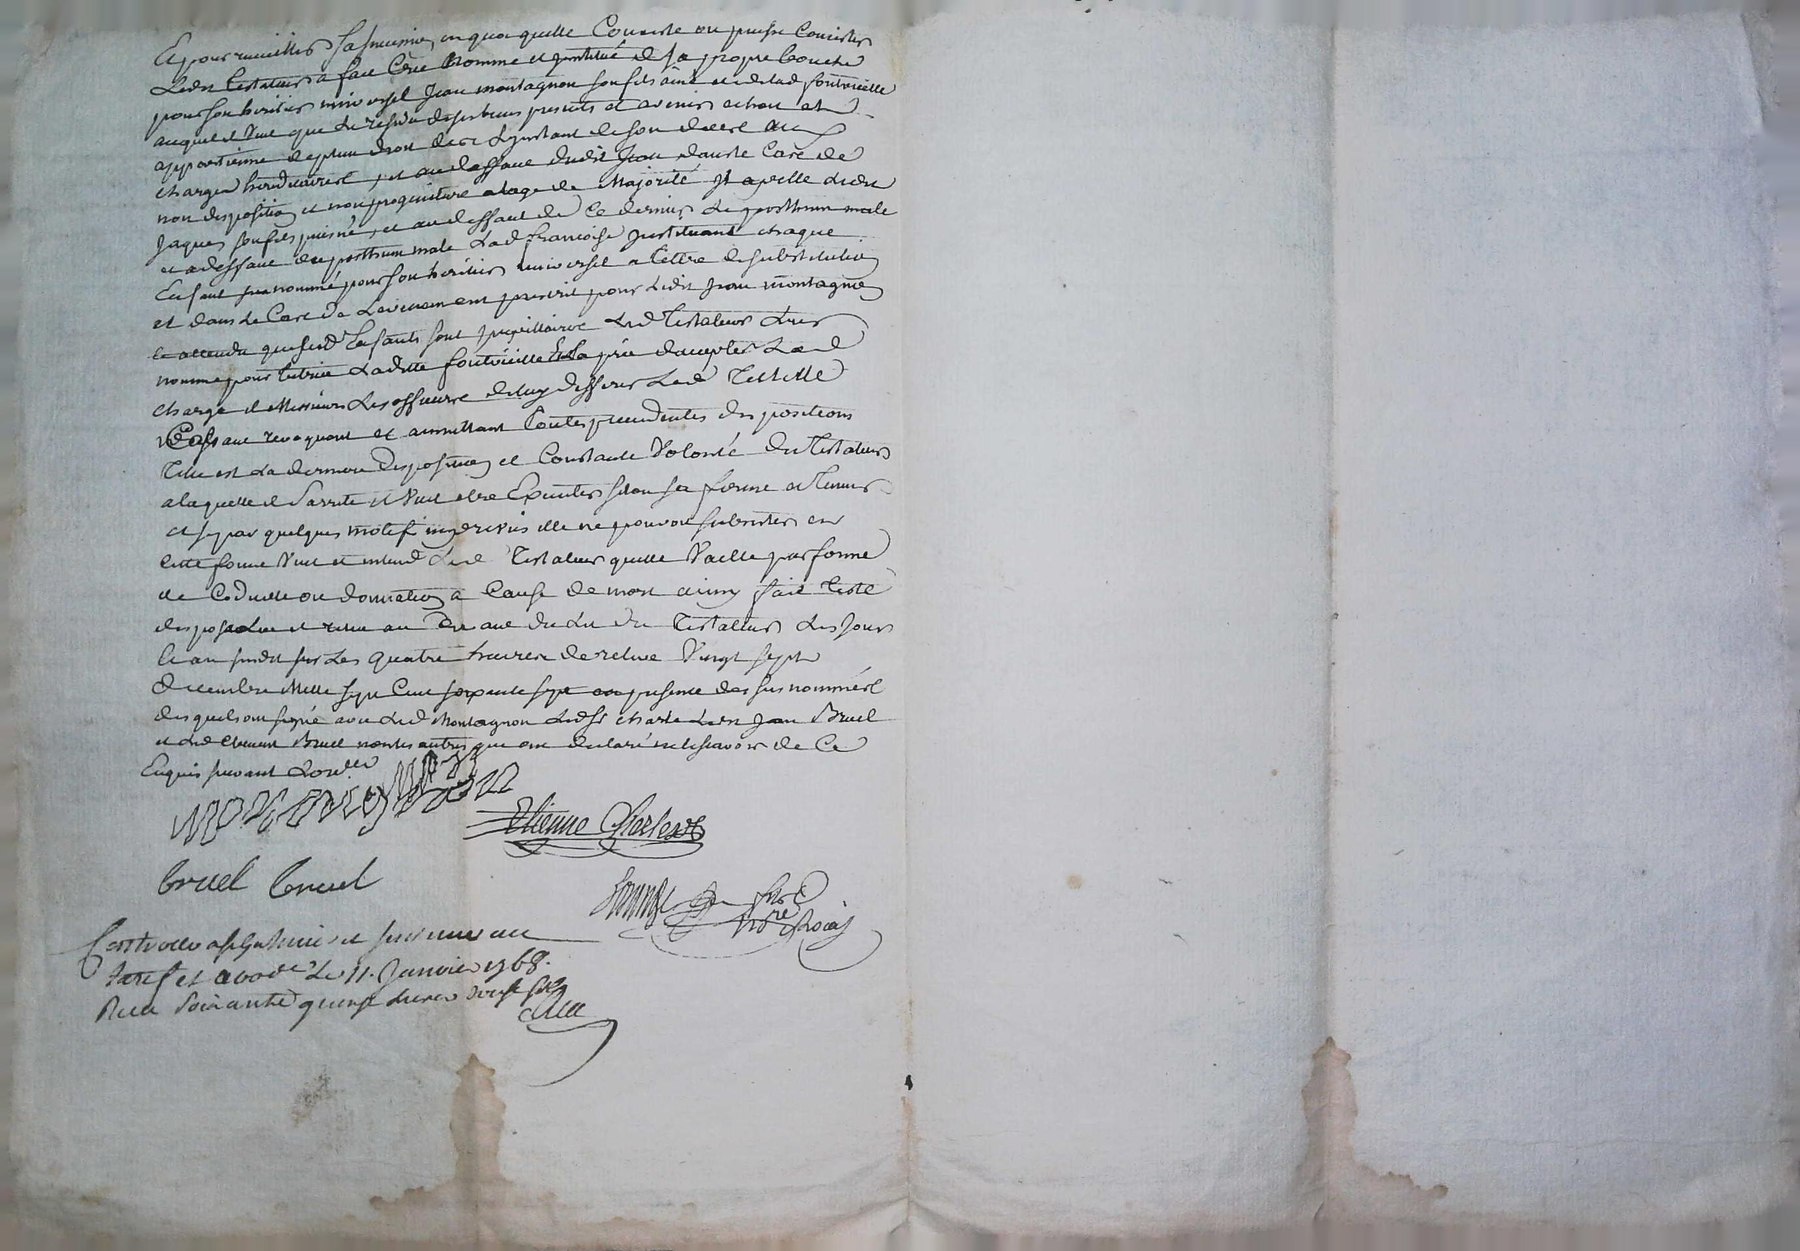 Et pour recueillir sa in quoy quelle Consiste ou puisse Consister
Ledit Testateur a fait Cree Nomme et institué de sa propre bouche
pour son heritier universel Jean montagnon son fils ainé et de lad fontvieille
auquel il Veut que Le residu de ses biens presents et avenir echoit et
appartienne de plein droit des L'instant de son deces aux
charges hereditaires, et au deffaut dudit Jean dans le Cas de
non disposition et non progeniture a lage de Majorité Il apelle ledit
Jaques son fils puisné, et au deffaut de Ce dernier Le posthume male
et a deffaut du posthume male Lad francoise Instituant chaque
Enfant nommé pour son heritier universel a tittre de substitution
et dans le Cas de Levenement prescrit pour Ledit Jean montagnon
et attendu que sesd Enfants sont pupillaires Led Testateur
nomme pour tutrice Ladite fontvieille Et La prie daccepter Lad
charge et Messieurs Les officiers de luy differer Lad Tutelle
Cassant revoquant et annullant Toutes precedentes dispositions
Telle est La derniere Disposition et Constante Volonté du Testateur
a laquelle il Sarrete et Veut etre Executée selon sa forme et Teneur
et sy par quelques motif imprevus elle ne pouvoit subsister en
cette forme Veut et entend Led Testateur quelle Vaille par forme
de Codicille ou donnation a Cause de mort ainsy fait Testé
disposé et au du Lit du Testateur Les jour
et an susdit sur Les quatre heures de relevé Vingt sept
decembre Mille sept Cent soixante sept en presence des sus nommées
desquels ont signé avec Led Montagnon Jean Bruel
et Led Bruel non les autres que ont declaré ne scavoir de Ce
Enquis suivant Lord.ce
montagnon
Etienne
bruel bruel
no.re Roial
Controllé et insinué au
tarif et Le 11. Janvier 1768.
Recu Soixante quinse livres